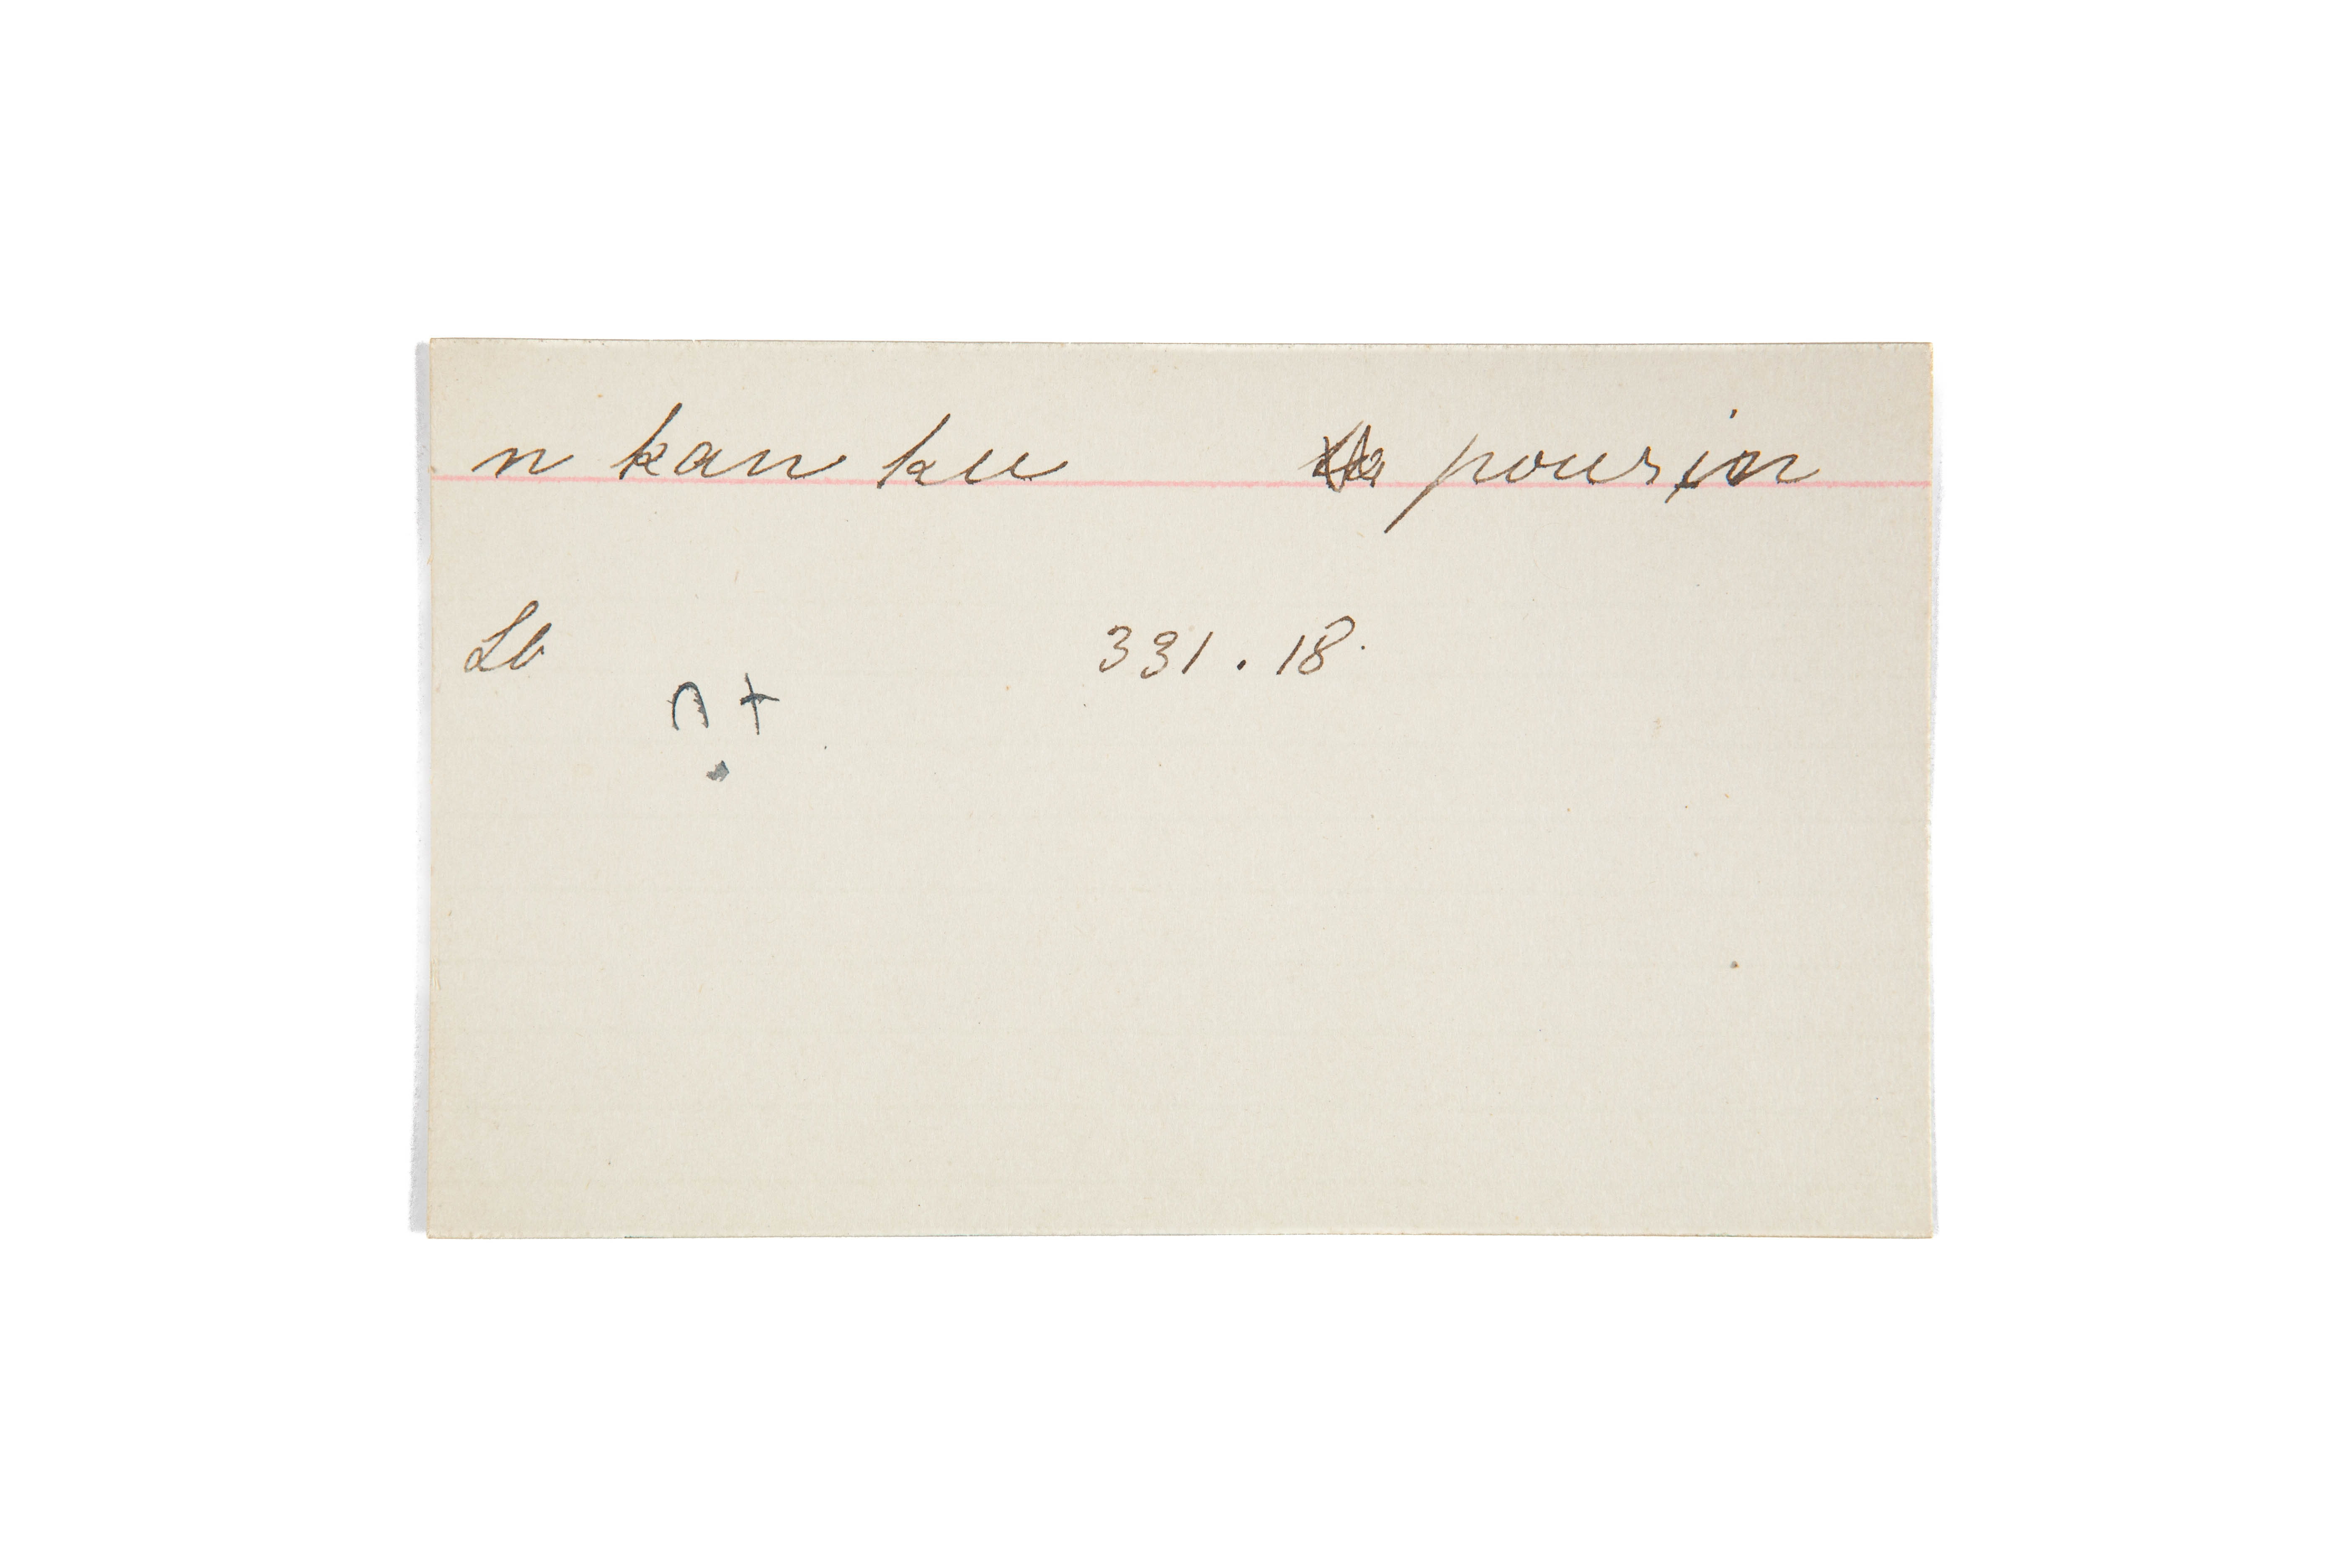 n kan ku pour in
Lb 331.18.
n +